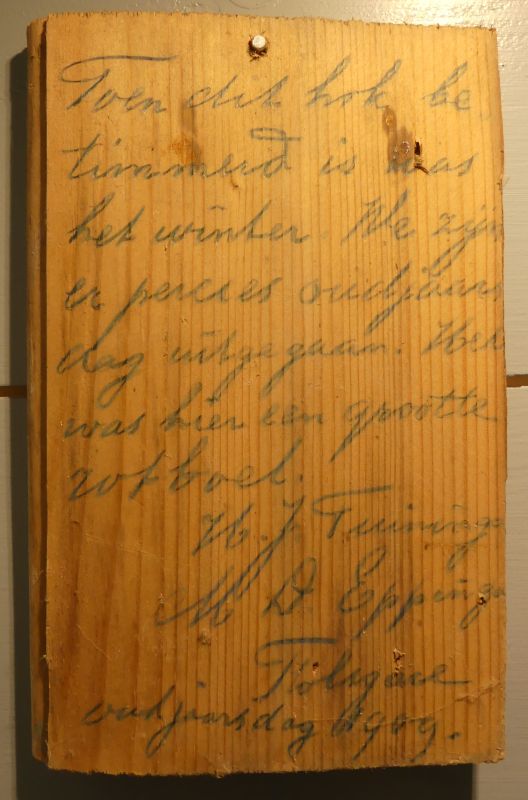 Toen dit hok be
timmerd is was
het winter. We zijn
er percies oudjaars
dag uitgegaan. Het
was hier een grootte
rotboel.
H. J Tuininga
M D Eppinga
oudjaarsdag 1909.